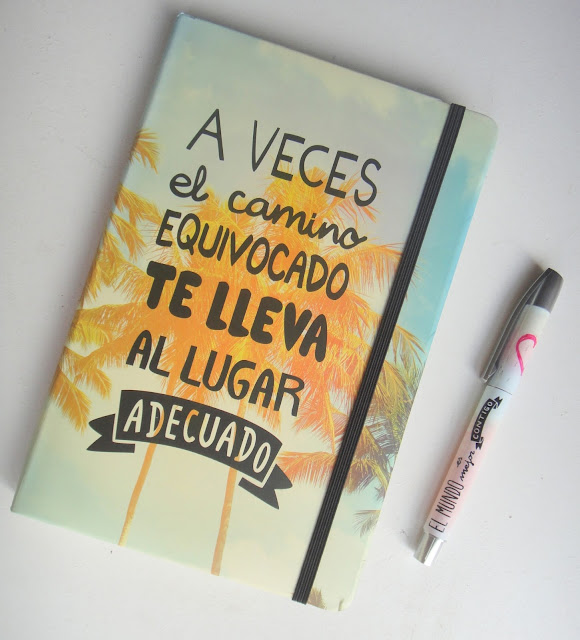 A VECES
el camino
EQUIVOCADO
TE LLEVA
AL LUGAR
ADECUADO
EL MUNDO es mejor CONTIGO